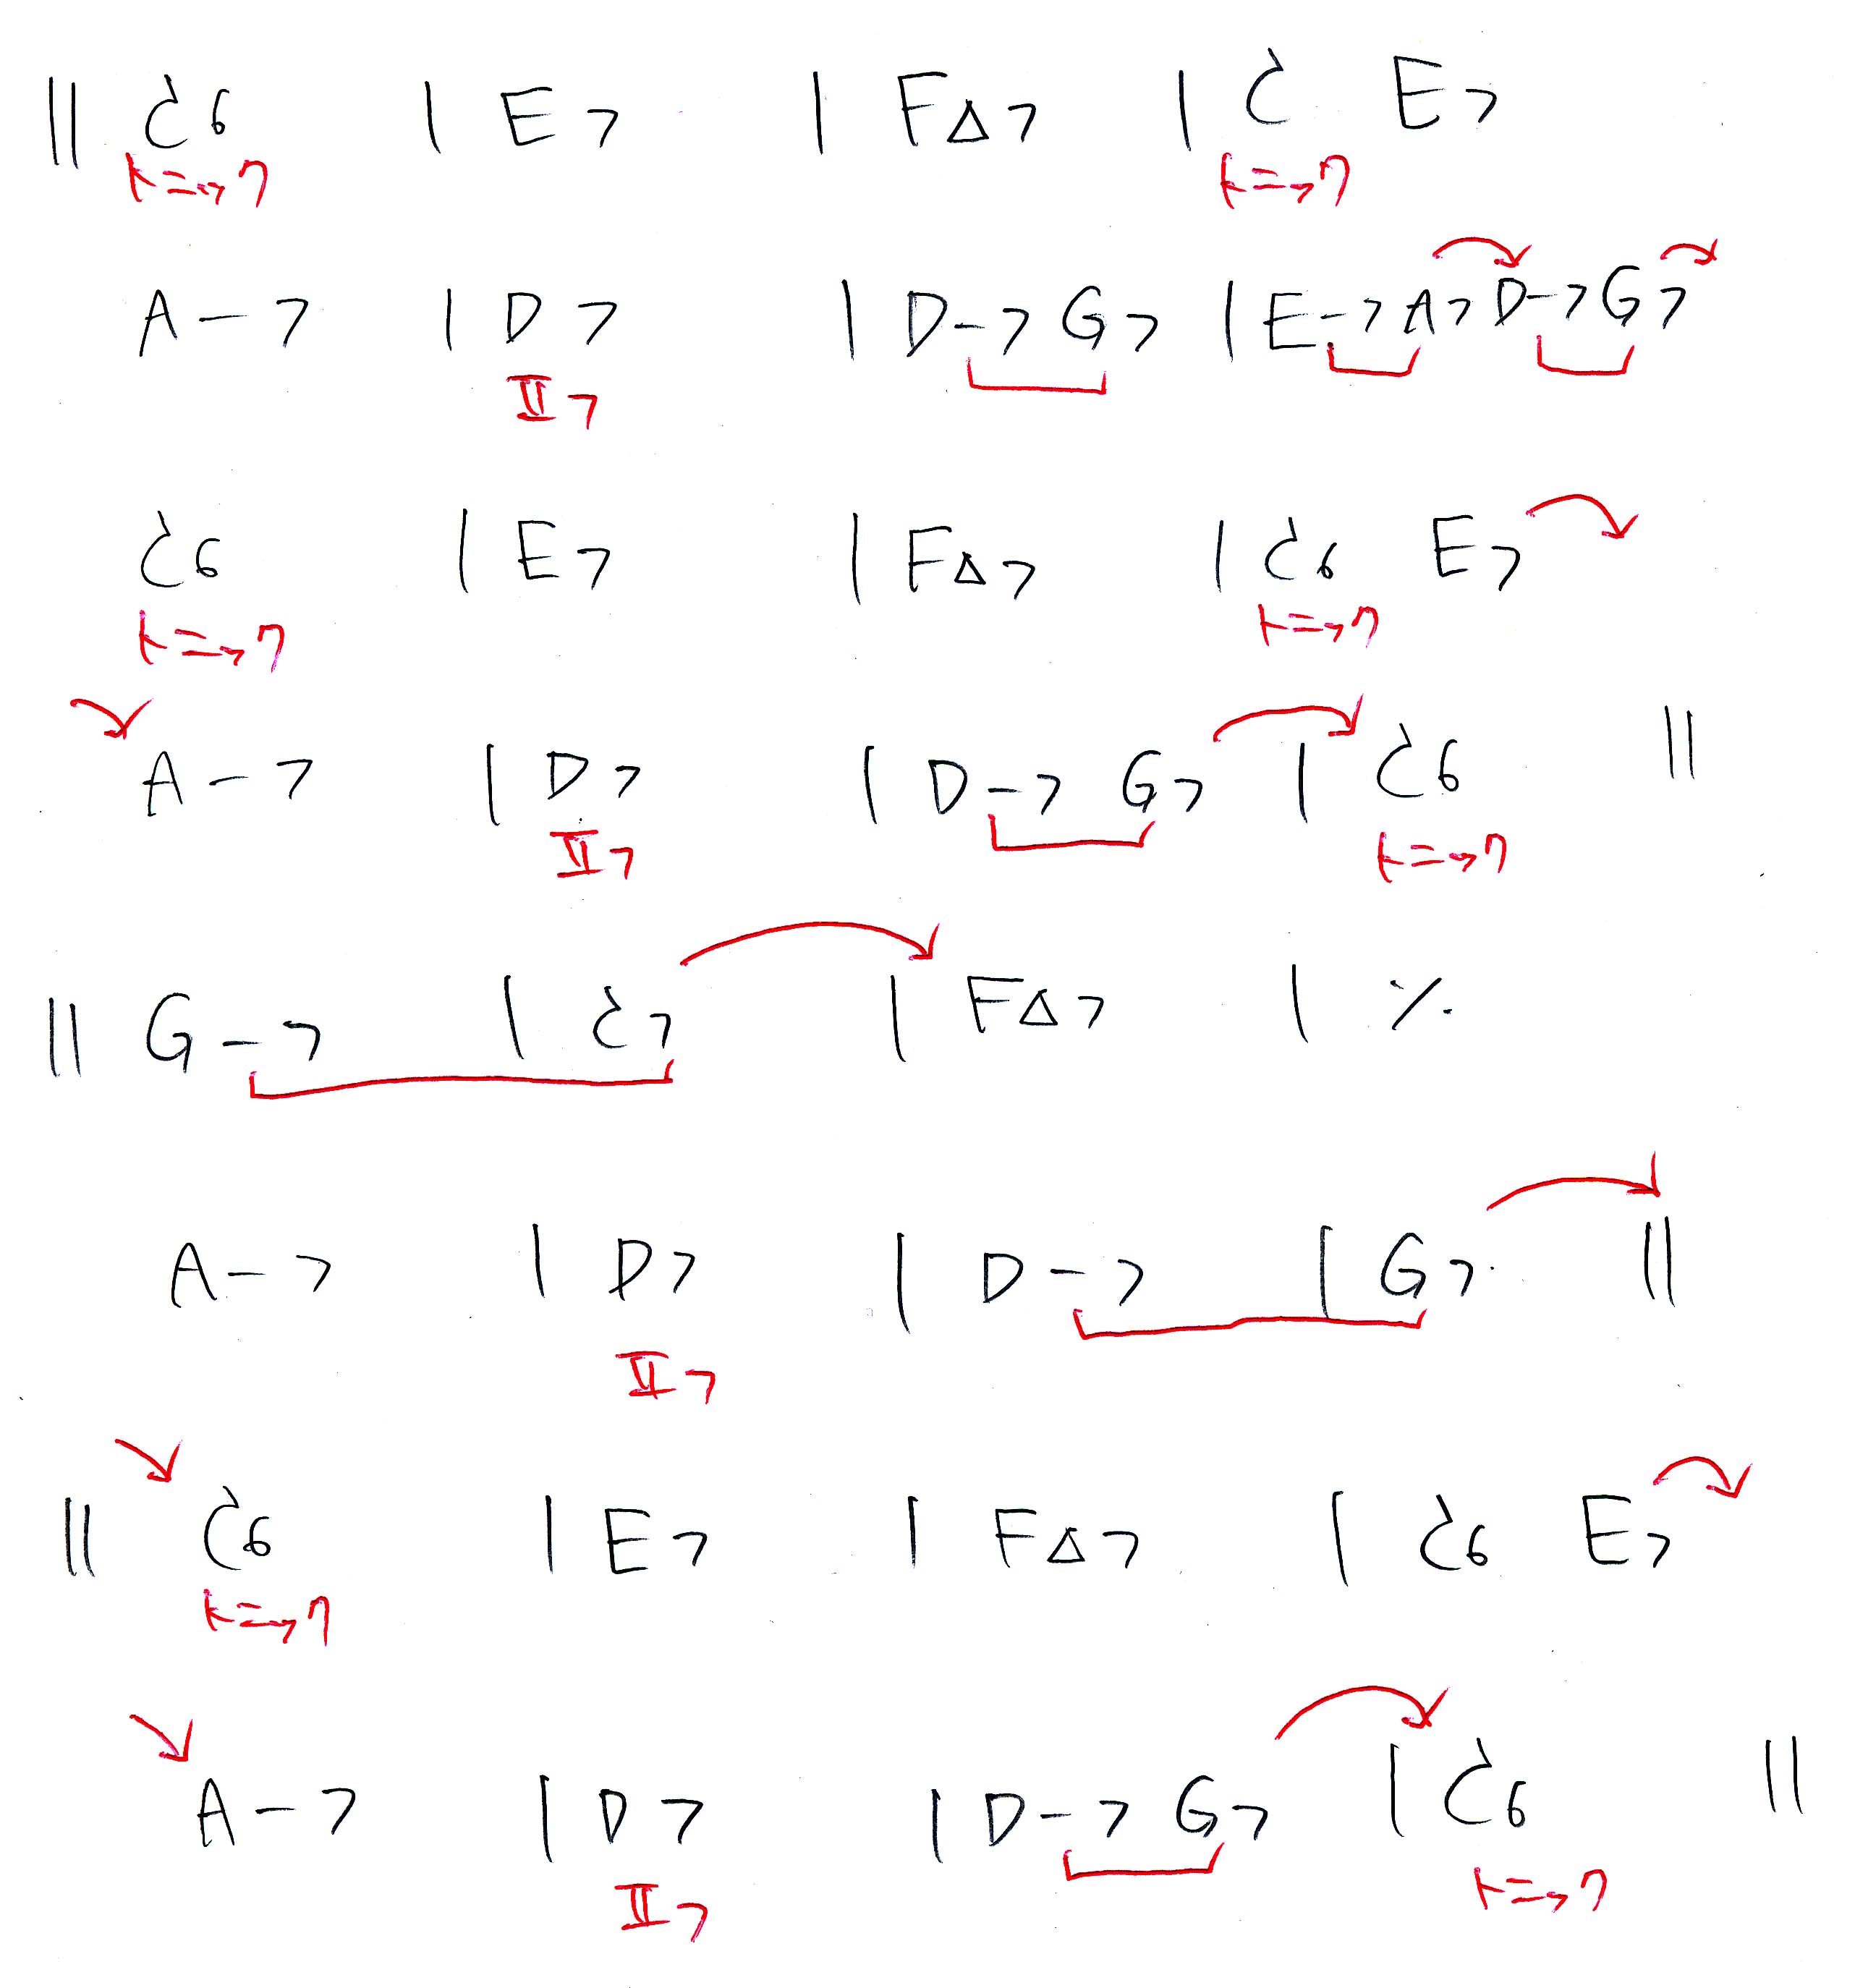 || C6 | E7 | F△7 | C E7
トニック トニック
A-7 | D7 | D-7 G7 | E-7 A7 D-7 G7
II7
C6 | E7 | F△7 | C6 E7
トニック トニック
A-7 | D7 | D-7 G7 | C6 ||
II7 トニック
|| G-7 | C7 | F△7 | %
A-7 | D7 | D-7 | G7 ||
II7
|| C6 | E7 | F△7 | C6 E7
トニック
A-7 | D7 | D-7 G7 | C6 ||
II7 トニック